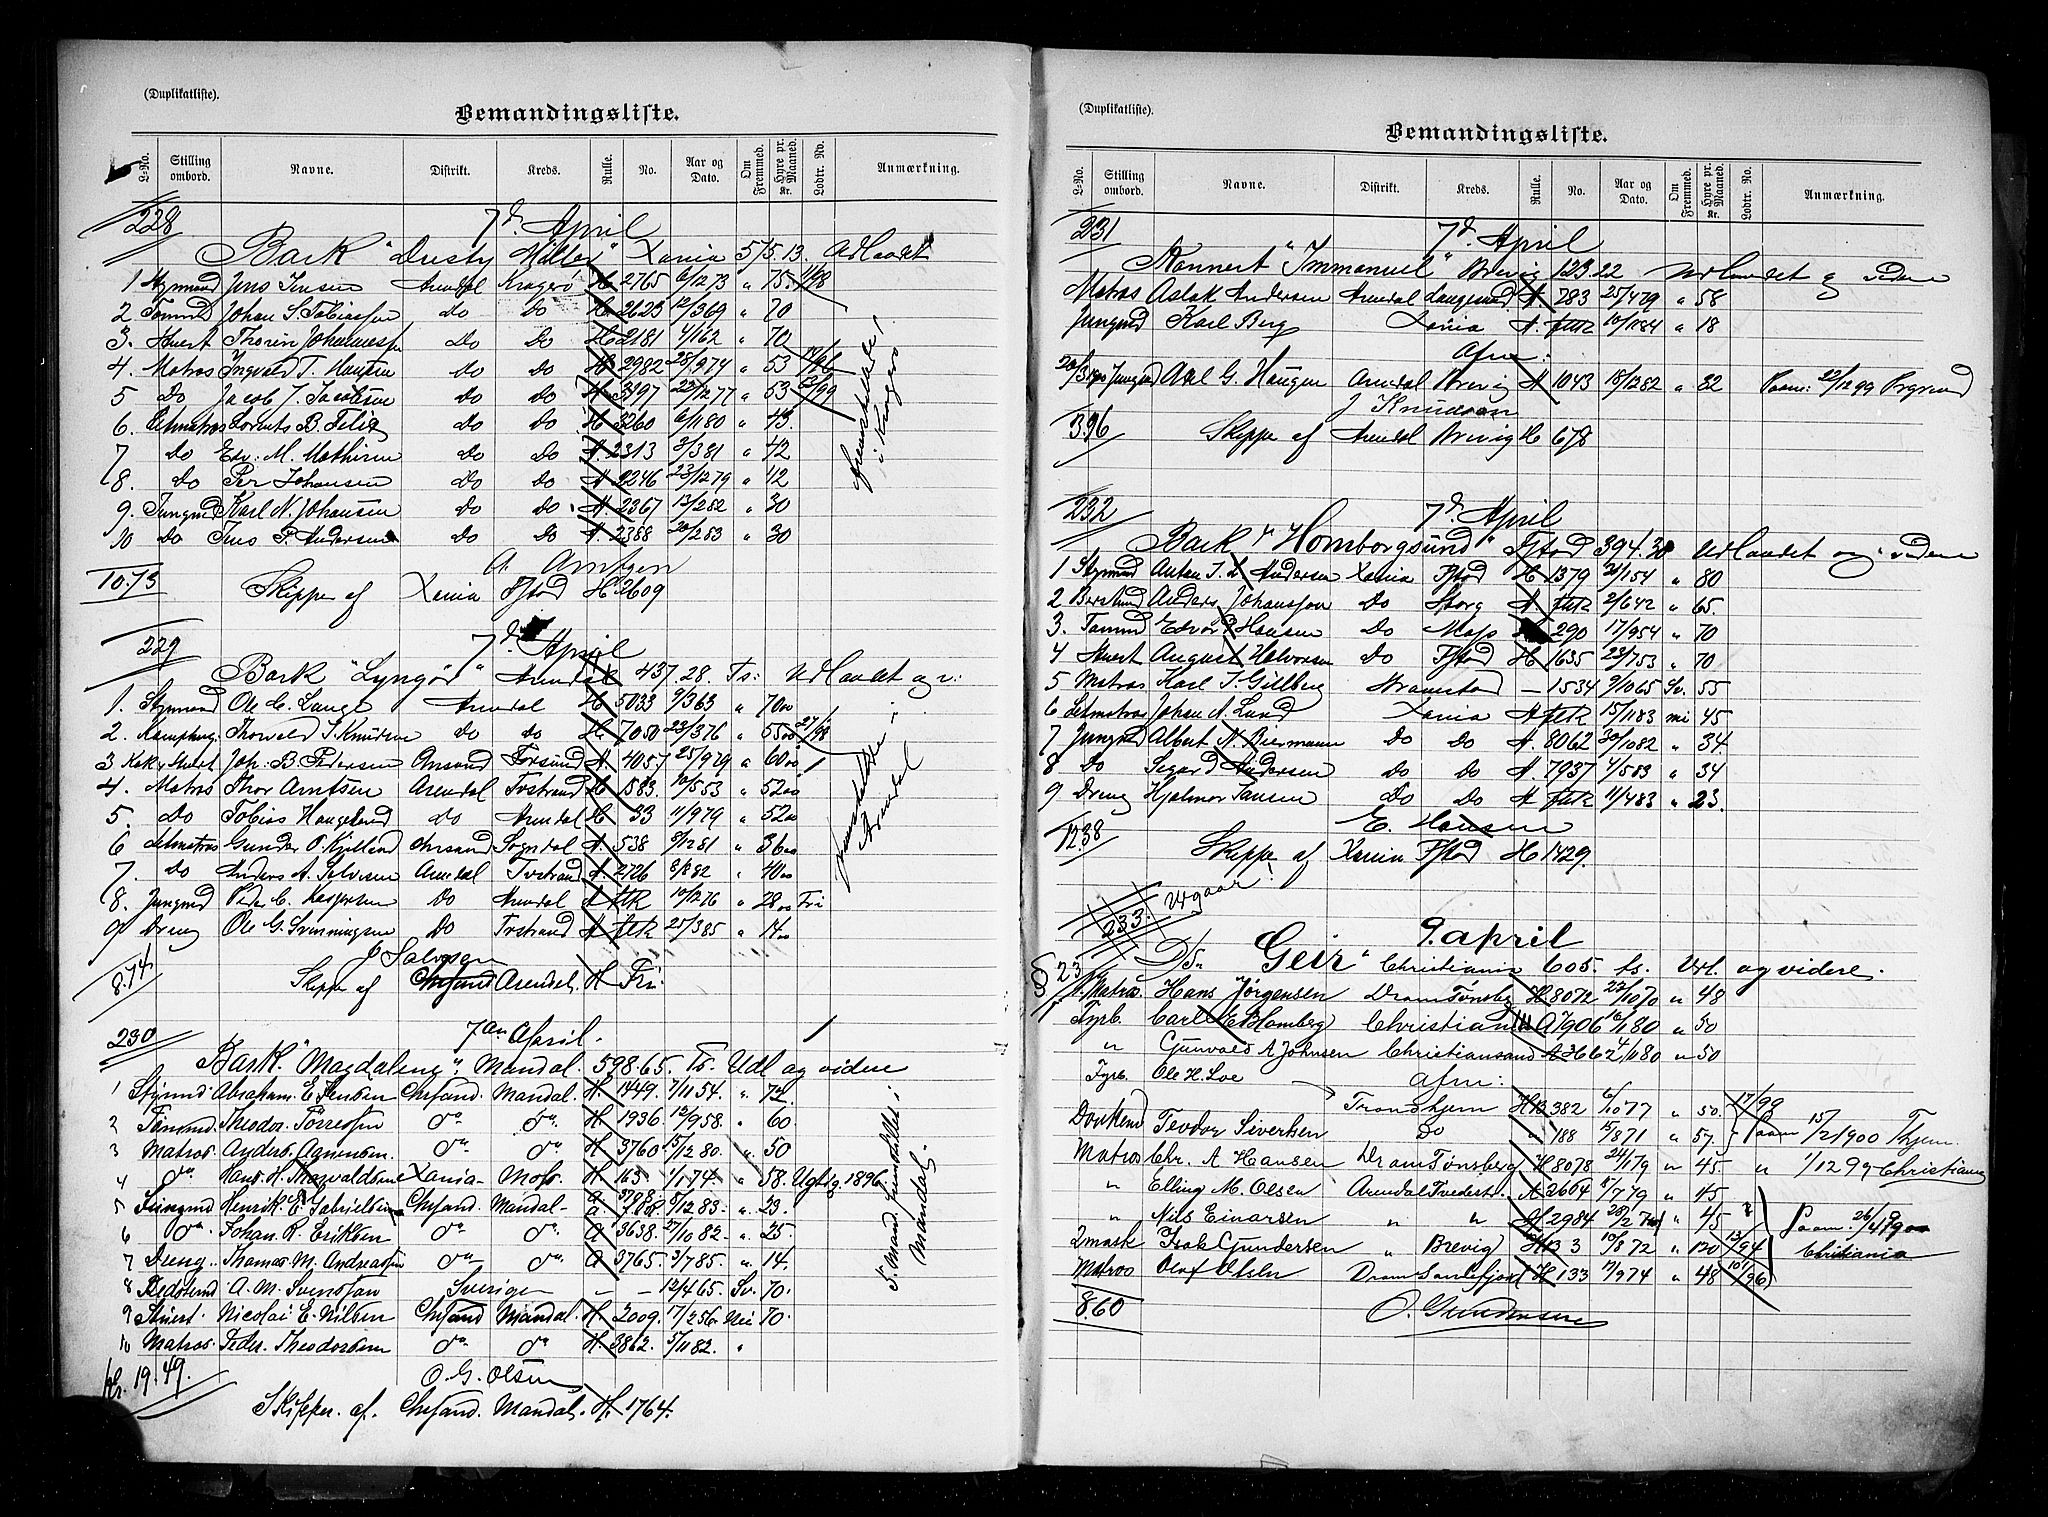 (Duplikatliste).
Bemandingsliste.
L-No. Stilling ombord. Navne. Distrikt. Kreds. Rulle. No. Aar og Dato. Om Fremmed. Hyre pr. Maaned. Kr. Lodtr. No. Anmærkning.
228 7d April
Bark "Dusty Miller" Xania 575.13. Udlandet
1 Styrmand Jens Jensen Arendal Kragerø H 2765 6/1273 " 75. 11/98
2 Tømmd Johan S. Tobiassen do do H 2623 12/369 " 70
3. Stuert Thorin Johannessen Do Do H 2181 4/162 " 70
4. Matros Ingvald T. Hansen do do H 2982 28/974 " 53 19/96
5 Do Jacob J. Jacobsen do do H. 3397 22/1277 " 53 /99
6. Letmatros Lorents B. Felix do do H 3260 6/1180 " 43.
7 do Edv. M. Mathisen do do A. 2313 3/381 " 42
8. do Per Johansen do do A 2246 23/1279 " 42
9. Jungmd Karl N. Johansen do do. A. 2367 13/282 " 30
10 Do Jens P. Andersen do do A. 2388 20/283 " 30
Fremstilles i Kragerø
A. Arntzen
1073 Skipper af Xania Fstad H 2609
229 7d April
Bark "Lyngør" Arendal 437.28. Ts: Udlandet og v:
1. Styrmand Ole C. Lange Arendal H 5033 9/363 " 70 00
2. Kamphug. Thorvald J. Knudsen do do H 7050 23/376 " 55 00 27/98
3 Kok & Stuert Joh. B. Pedersen Cnsand Farsund A 4057 25/979 " 60 00
4. Matros Thor Arntsen Arendal Tvstrand H 1583. 10/553 " 52 00
5. do Tobias Haugeland do Arendal H 33 11/979 " 52 00
6 Letmatros Gunder O. Kjelland Chrsand Sogndal A. 538 8/1281 " 36 00
7. do Anders A. Selvesen Arendal Tvstrand A. 2726 8/882 " 40 00
8. Jungmd Peder C. Kaspersen Do Arendal A ftk 10/1276 " 28 00 Fri
9 Dreng Ole G. Svenningsen Do Tvstrand A ftk 25/385 " 14 00
Fremstilles i Arendal
J Salvesen
8.74. Skipper af Chrsand Arendal. H Fri
230 7an April.
Bark. "Magdalena". Mandal. 598.65. Ts. Udl og videre
1 Styrmd. Abraham. E. Jensen Chrsand. Mandal. H. 1449. 7/1154. " 72.
2 Tømmd. Theodor. Torressen do do H. 1936. 12/958. " 60
3 Matros. Anders. Agnersen. do do H. 3760. 15/1280. " 50
4 do Hans. H. Thorvaldsen Xania. Moss. H. 163. 1/174. " 58. Ugtdg 1896
5 Jungmd Henrik E. Gabrielsen Chrsand. Mandal. A. 3798. 5/1283. " 23.
6 do Johan. R. Eriksen do do A 3638. 27/1082. " 25.
7 Dreng. Thomas. M. Andreassen do do A 3765. 3/785. " 14.
8 Bedstmd A. M. Svensson Sverige - - 12/465. Sv. 70.
9 Stuert. Nicolai E. Nilsen Chrsand Mandal. H. 2009. 17/256. Nei 70.
10 Matros. Peder. Theodorsen do do H. 3862. 5/1182. "
5. Mand. Fremstilles i Mandal.
O. G. Olsen
Kr. 19.49. Skipper. af. Chrsand. Mandal. H. 1764.
(Duplikatliste).
Bemandingsliste.
L-No. Stilling ombord. Navne. Distrikt. Kreds. Rulle. No. Aar og Dato. Om Fremmed. Hyre pr. Maaned. Kr. Lodtr. No. Anmærkning.
231 7d. April
Skonnert "Immanuel" Brevig 123.22 Udlandet og videre
Matros Aslak Andersen Arendal Langesund A. 783 25/479 " 58
Jungmd Karl Berg Xania A. ftk 10/1184 " 18
Afm:
Jungmd Axel G. Haugen Arendal Brevig A 1043 18/1282 " 32 Paam: 22/1299 Prsgrund
J Knudsen
3.96 Skipper af Arendal Brevig H 678
232 7d. April
Bark "Homborgsund" Fstad 394.30 Udlandet og videre
1 Styrmand Anton J. Andersen Xania Fstad H 1379 21/154 " 80
2 Bestmd Anders Johanssen Do Sborg A ftk 2/642 " 65.
3. Tømmd Edvard Hansen Do Moss 290 17/954 " 70
4 Stuert August Halvorsen Do Fstad H 1635 23/753 " 70
5 Matros Karl J. Gillberg - 1534 9/1065 Sv. 55
6 Letmatros Johan A. Lund Xania A ftk 15/1183 nei 45
7 Jungmd Albert N. Biermann Do Do A. 8062 30/1082 " 34
8 Do Sigurd Andersen do do A. 7937 4/583 " 34
9 Dreng Hjalmar Jansen Do Do A ftk 11/483 " 23.
E. Hansen
1238 Skipper af Xania Fstad H 1429.
233. Udgaar!
9. april
D/S. "Geir" Christiania 605. ts. Udl. og videre.
§ 23
Matros Hans Jørgensen Dram Tønsbg H 8072 23/1070 " 48
Fyrb. Carl E Blomberg Christiania A 7906 16/1180 " 50
" Gunvald A Johnsen Christiansand A 3662 4/1180 " 50
Fyrb. Ole H. Loe afm:
Trondhjem HB 382 6/1077 " 50. 17/99
Donkemd Teodor Sivertsen Do " 188 15/871 " 57. Paam 15/21900 Thjem.
Matros Chr. A Hansen Dram Tønsberg H 8078 24/179 " 45 " 1/1299 Christiania
" Elling M. Olsen Arendal Tvedest. A 2664 8/779 " 45
" Nils Einarsen " " H 2984 " 45 Paam. 26/41900 Christiania
2 mask Isak Gundersen " Brevig HB 3 10/872 " 120 13/94
Matros Olaf Olsen Dram Sandefjord H 133 17/974 " 48 101/96
8.60 O. Gundersen